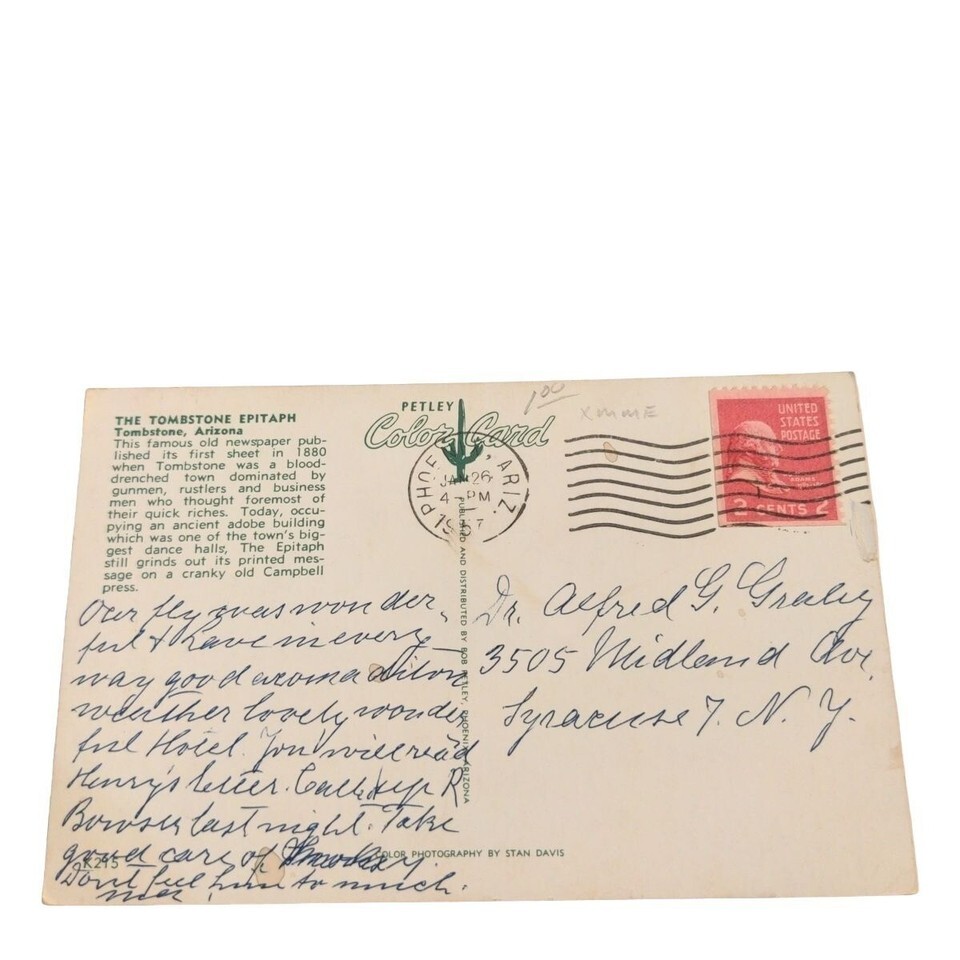 THE TOMBSTONE EPITAPH
Tombstone, Arizona
This famous old newspaper pub-
lished its first sheet in 1880
when Tombstone was a blood-
drenched town dominated by
gunmen, rustlers and business
men who thought foremost of
their quick riches. Today, occu-
pying an ancient adobe building
which was one of the town's big-
gest dance halls, The Epitaph
still grinds out its printed mes-
sage on a cranky old Campbell
press.
PETLEY
Color Card
1.00
XMME
PHOENIX, ARIZ.
JAN 26
4 PM
UNITED
STATES
POSTAGE
ADAMS
2 CENTS 2
PUBLISHED AND DISTRIBUTED BY BOB PETLEY, PHOENIX, ARIZONA
Our fly was wonder
ful & have in every
way good
weather lovely wonder
ful Hotel. You will read
Henry's letter. Called up R
Bowser last night. Take
good care of
Dont feel him to much.
K215
COLOR PHOTOGRAPHY BY STAN DAVIS
Dr. Alfred G. Graley
3505 Midland Ave.
Syracuse 7. N. Y.